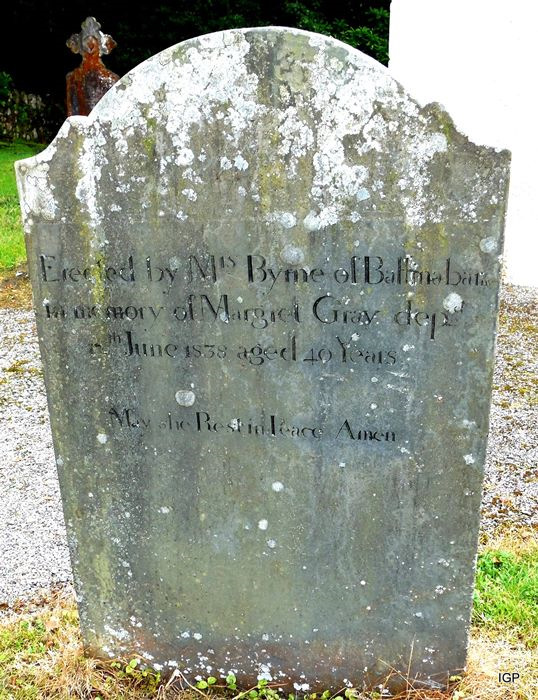 Erected by Mrs Byrne of
in memory of Margret Gray depd
th June 1838 aged 40 Years
May she Rest in Peace Amen
IGP